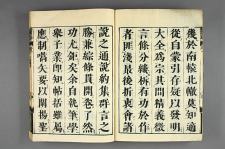 後於南轅北轍莫知適
從自蒙引存疑以
大全爲宗其間精義微
言條分縷析有功於作
者匪淺最後折衷會
說之通說約集群言之
勝兼綜條貫開卷了然
功尤鉅矣余自執筆學
舉子業即知
應制 矢要以闡揚聖